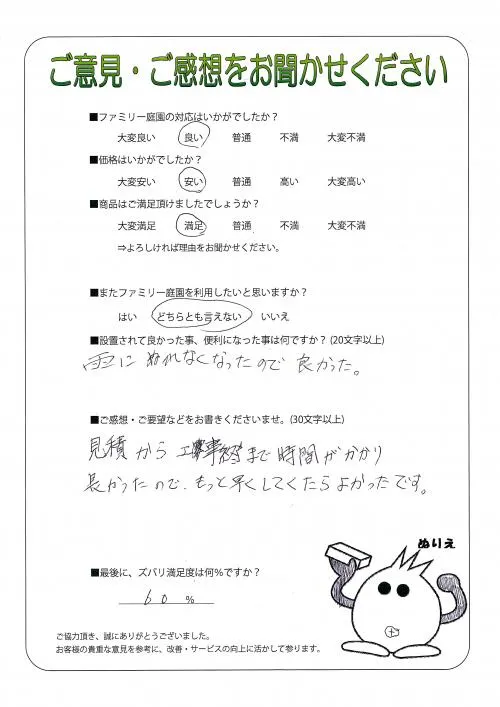 ご意見・ご感想をお聞かせください
■ファミリー庭園の対応はいかがでしたか？
大変良い 良い 普通 不満 大変不満
■価格はいかがでしたか？
大変安い 安い 普通 高い 大変高い
■商品はご満足頂けましたでしょうか？
大変満足 満足 普通 不満 大変不満
⇒よろしければ理由をお聞かせください。
■またファミリー庭園を利用したいと思いますか？
はい どちらとも言えない いいえ
■設置されて良かった事、便利になった事は何ですか？(20文字以上)
雨に ぬれなくなったので 良かった。
■ご感想・ご要望などをお書きくださいませ。(30文字以上)
見積から 工事終了まで 時間がかかり
長かったので、もっと早くしてくたらよかったです。
ぬりえ
■最後に、ズバリ満足度は何％ですか？
60 ％
ご協力頂き、誠にありがとうございました。
お客様の貴重な意見を参考に、改善・サービスの向上に活かして参ります。